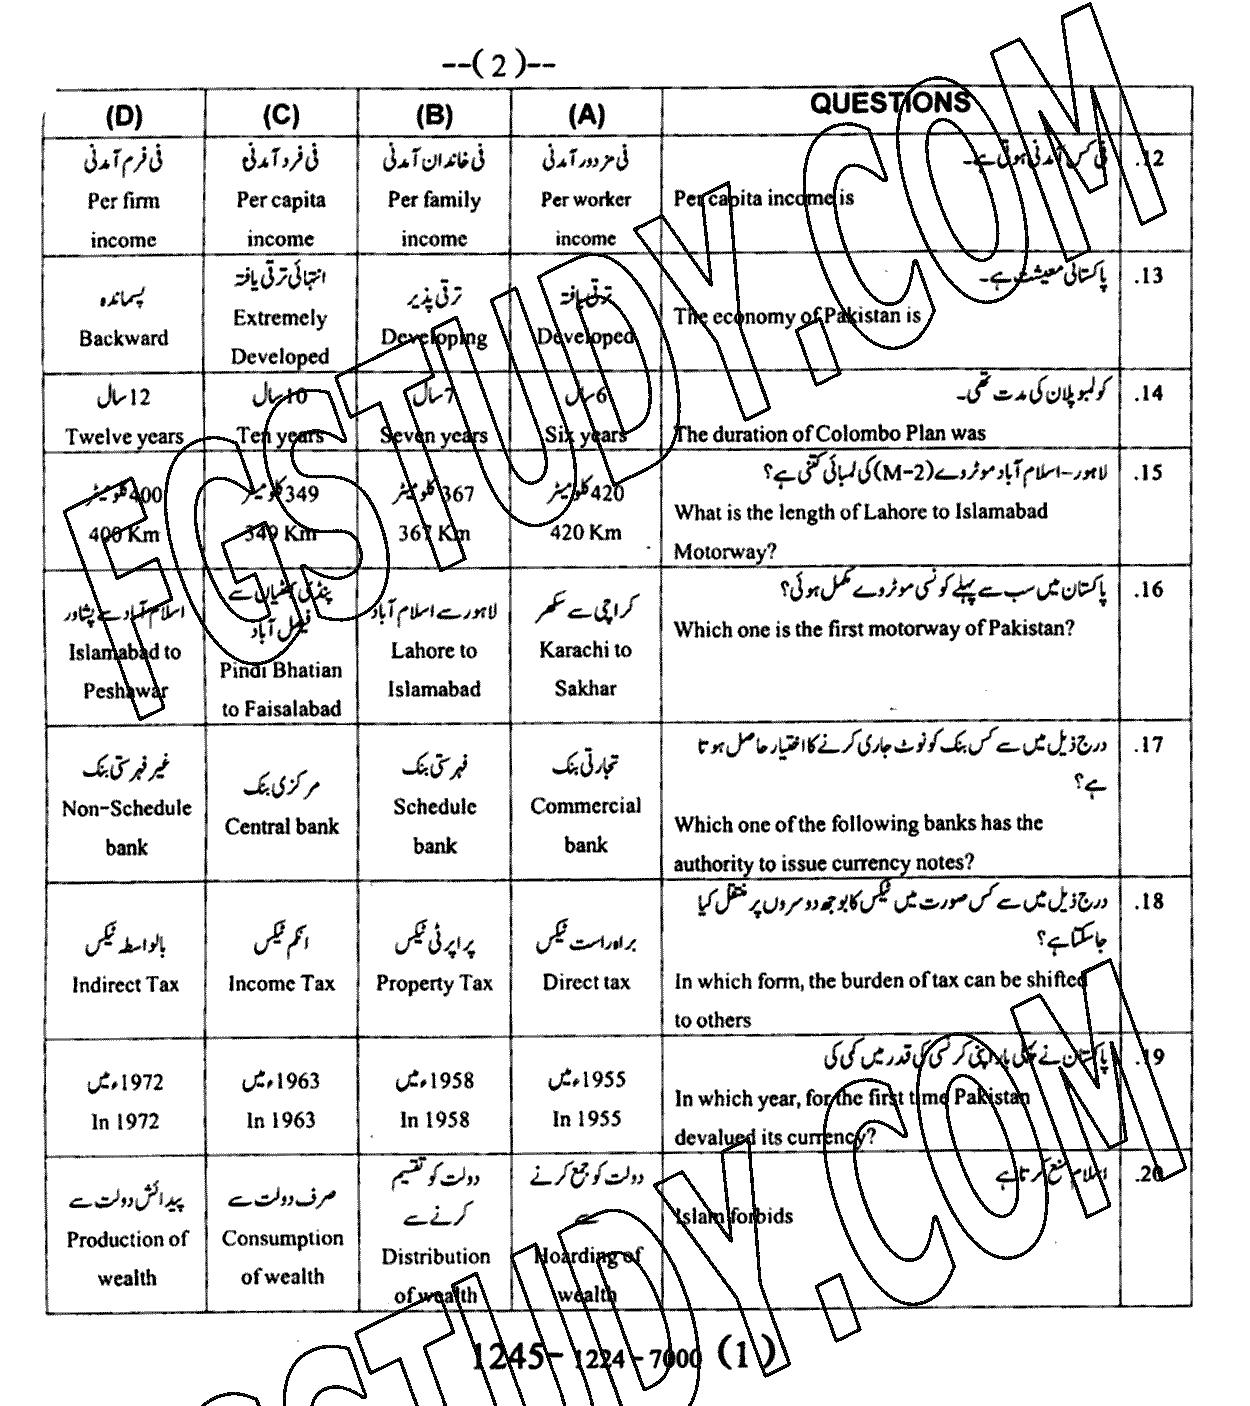 --(2)--
(D) (C) (B) (A) QUESTIONS
فی فرم آمدنی فی فرد آمدنی فی خاندان آمدنی فی مزدور آمدنی فی کس آمدنی ہوتی ہے۔ .12
Per firm Per capita Per family Per worker Per capita income is
income income income income
پسماندہ انتہائی ترقی یافتہ ترقی پذیر ترقی یافتہ پاکستانی معیشت ہے۔ .13
Backward Extremely Developing Developed The economy of Pakistan is
Developed
12سال 10سال 7سال 6سال کولمبو پلان کی مدت تھی۔ .14
Twelve years Ten years Seven years Six years The duration of Colombo Plan was
400کلومیٹر 349کلومیٹر 367کلومیٹر 420کلومیٹر لاہور–اسلام آباد موٹروے (M-2) کی لمبائی کتنی ہے؟ .15
400 Km 349 Km 367 Km 420 Km What is the length of Lahore to Islamabad
Motorway?
اسلام آباد سے پشاور پنڈی بھٹیاں سے لاہور سے اسلام آباد کراچی سے سکھر پاکستان میں سب سے پہلے کونسی موٹروے مکمل ہوئی؟ .16
فیصل آباد
Islamabad to Pindi Bhatian Lahore to Karachi to Which one is the first motorway of Pakistan?
Peshawar to Faisalabad Islamabad Sakhar
غیر فہرستی بنک مرکزی بنک فہرستی بنک تجارتی بنک درج ذیل میں سے کس بنک کو نوٹ جاری کرنے کا اختیار حاصل ہوتا .17
ہے؟
Non-Schedule Central bank Schedule Commercial Which one of the following banks has the
bank bank bank authority to issue currency notes?
بالواسطہ ٹیکس انکم ٹیکس پراپرٹی ٹیکس براہ راست ٹیکس درج ذیل میں سے کس صورت میں ٹیکس کا بوجھ دوسروں پر منتقل کیا .18
جاسکتا ہے؟
Indirect Tax Income Tax Property Tax Direct tax In which form, the burden of tax can be shifted
to others
1972ء میں 1963ء میں 1958ء میں 1955ء میں پاکستان نے پہلی بار اپنی کرنسی کی قدر میں کمی کی .19
In 1972 In 1963 In 1958 In 1955 In which year, for the first time Pakistan
devalued its currency?
پیدائش دولت سے صرف دولت سے دولت کو تقسیم دولت کو جمع کرنے اسلام منع کرتا ہے .20
کرنے سے سے
Production of Consumption Distribution Hoarding of Islam forbids
wealth of wealth of wealth wealth
1245- 1224-7000 (1)
FGSTUDY.COM
FGSTUDY.COM